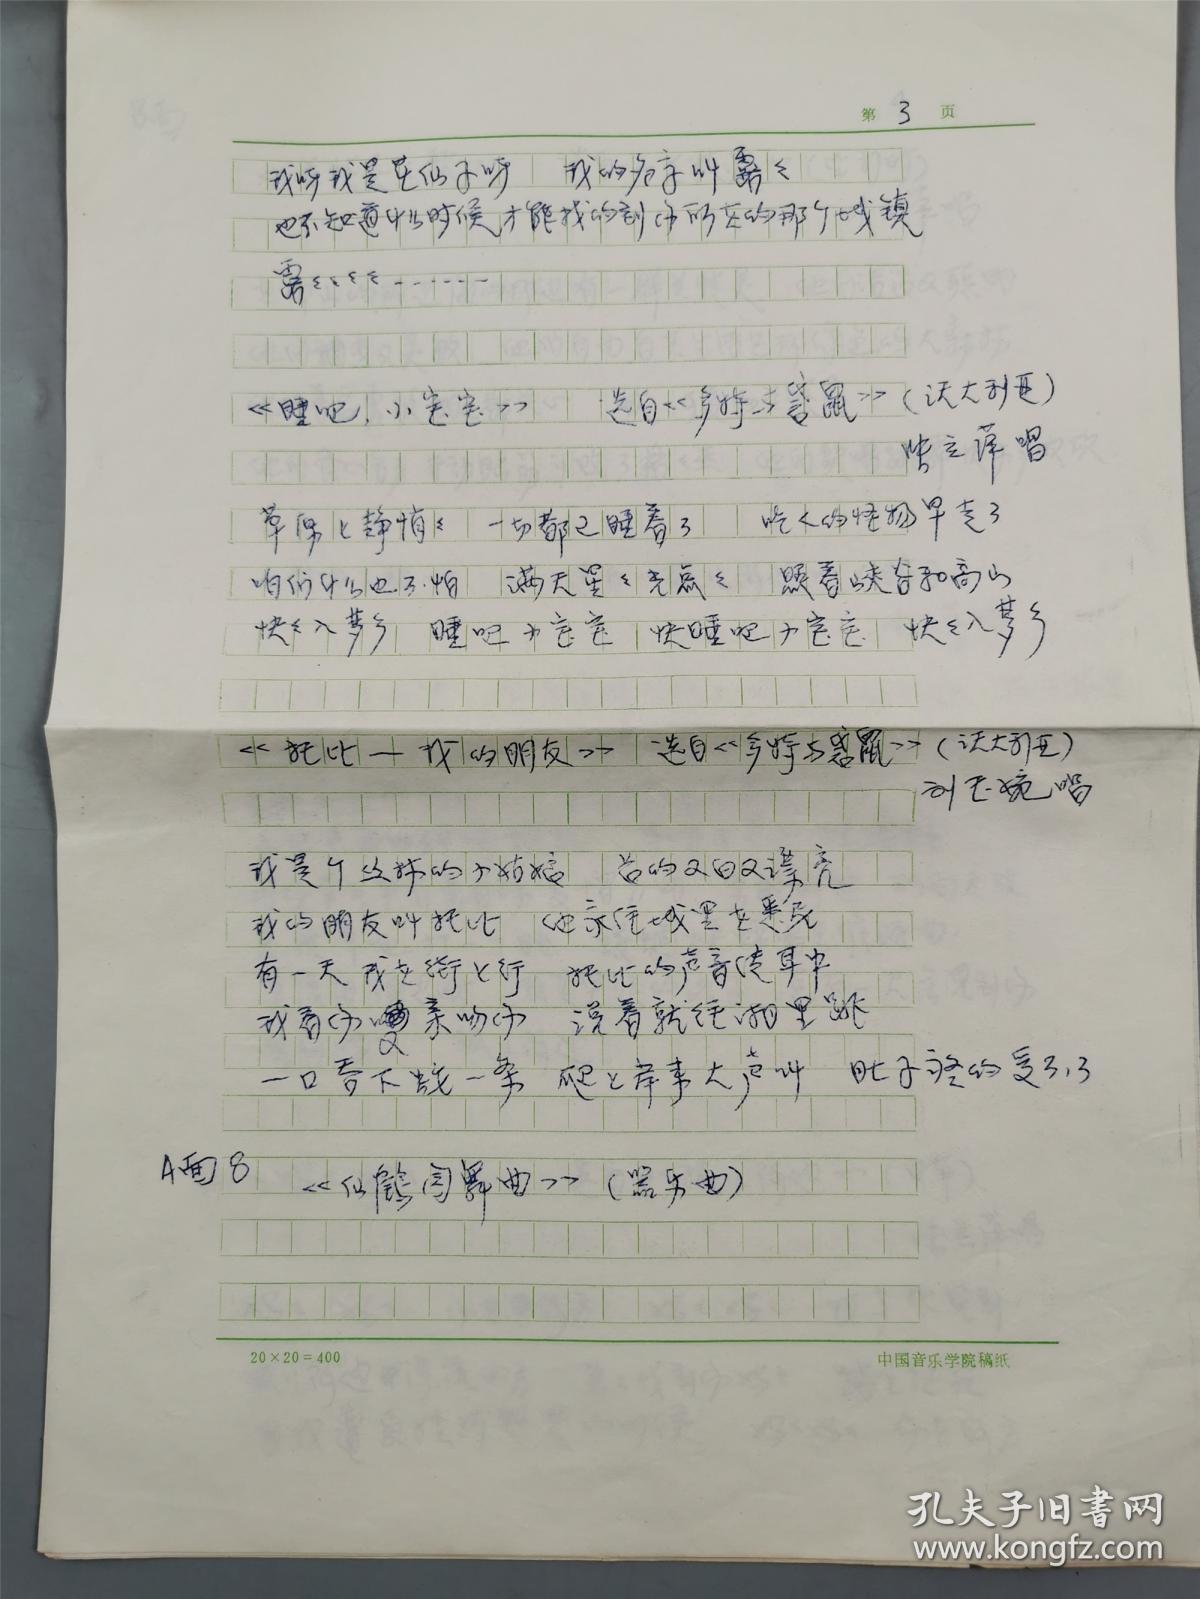 第 3 页
我呀我是花仙子呀 我的名字叫露々
也不知道什么时候才能找的到你所在的那个城镇
露々々々……
《睡吧，小宝宝》 选自《多特与袋鼠》（沃大利亚）
张立萍唱
草原上静悄々 一切都已睡着了 吃人的怪物早走了
咱们什么也不怕 满天星々光点々 照着峡谷和高山
快々入梦乡 睡吧小宝宝 快睡吧小宝宝 快々入梦乡
《托比—我的朋友》 选自《多特与袋鼠》（沃大利亚）
刘玉婉唱
我是个文静的小姑娘 长的又白又漂亮
我的朋友叫托比 他家住城里在悉尼
有一天我在街上行 托比的声音传耳中
我看你又亲吻你 说着就往湖里跳
一口吞下蛙一条 爬上岸来大声叫 肚子疼的受不了
A面8 《仙鹤圆舞曲》（器乐曲）
20×20=400 中国音乐学院稿纸
孔夫子旧书网
www.kongfz.com